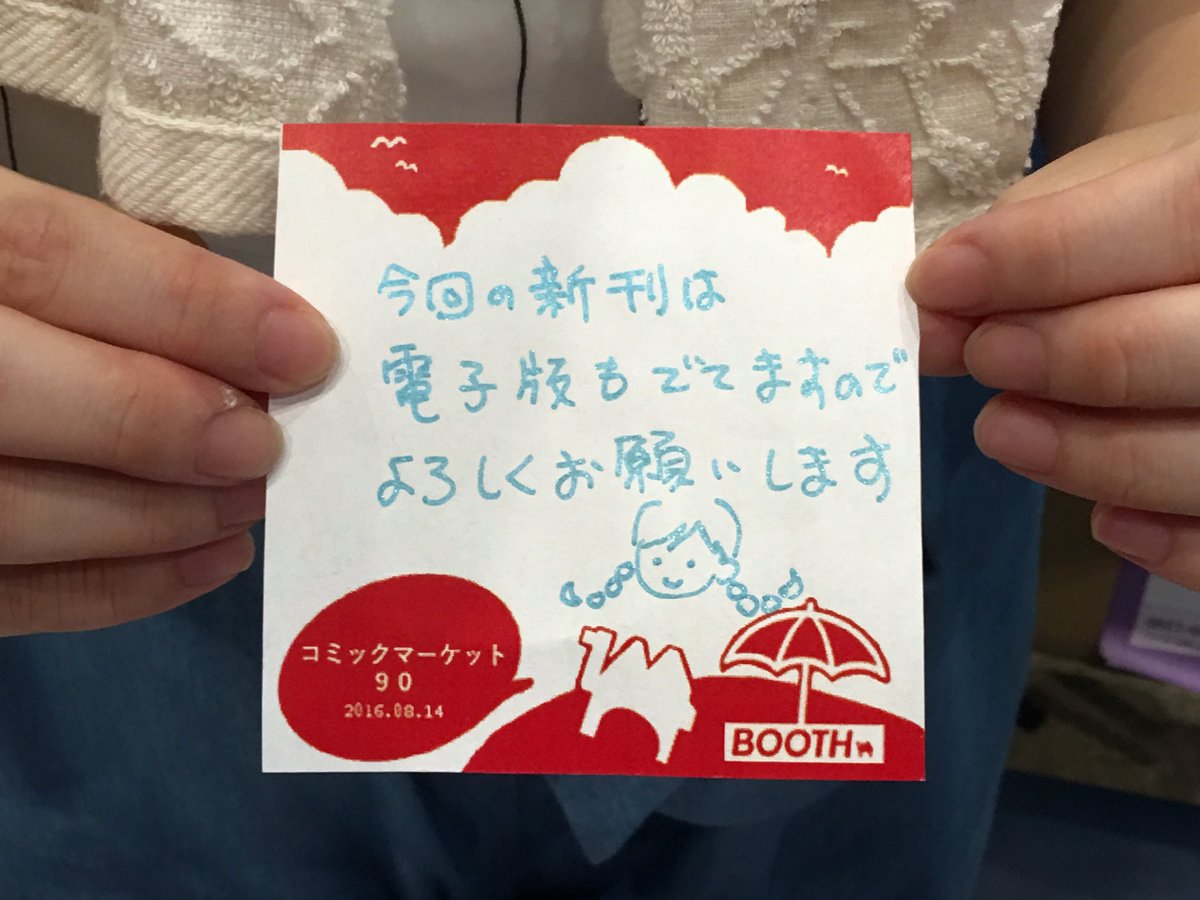 今回の新刊は
電子版もでてますので
よろしくお願いします
コミックマーケット
90
2016.08.14
BOOTH